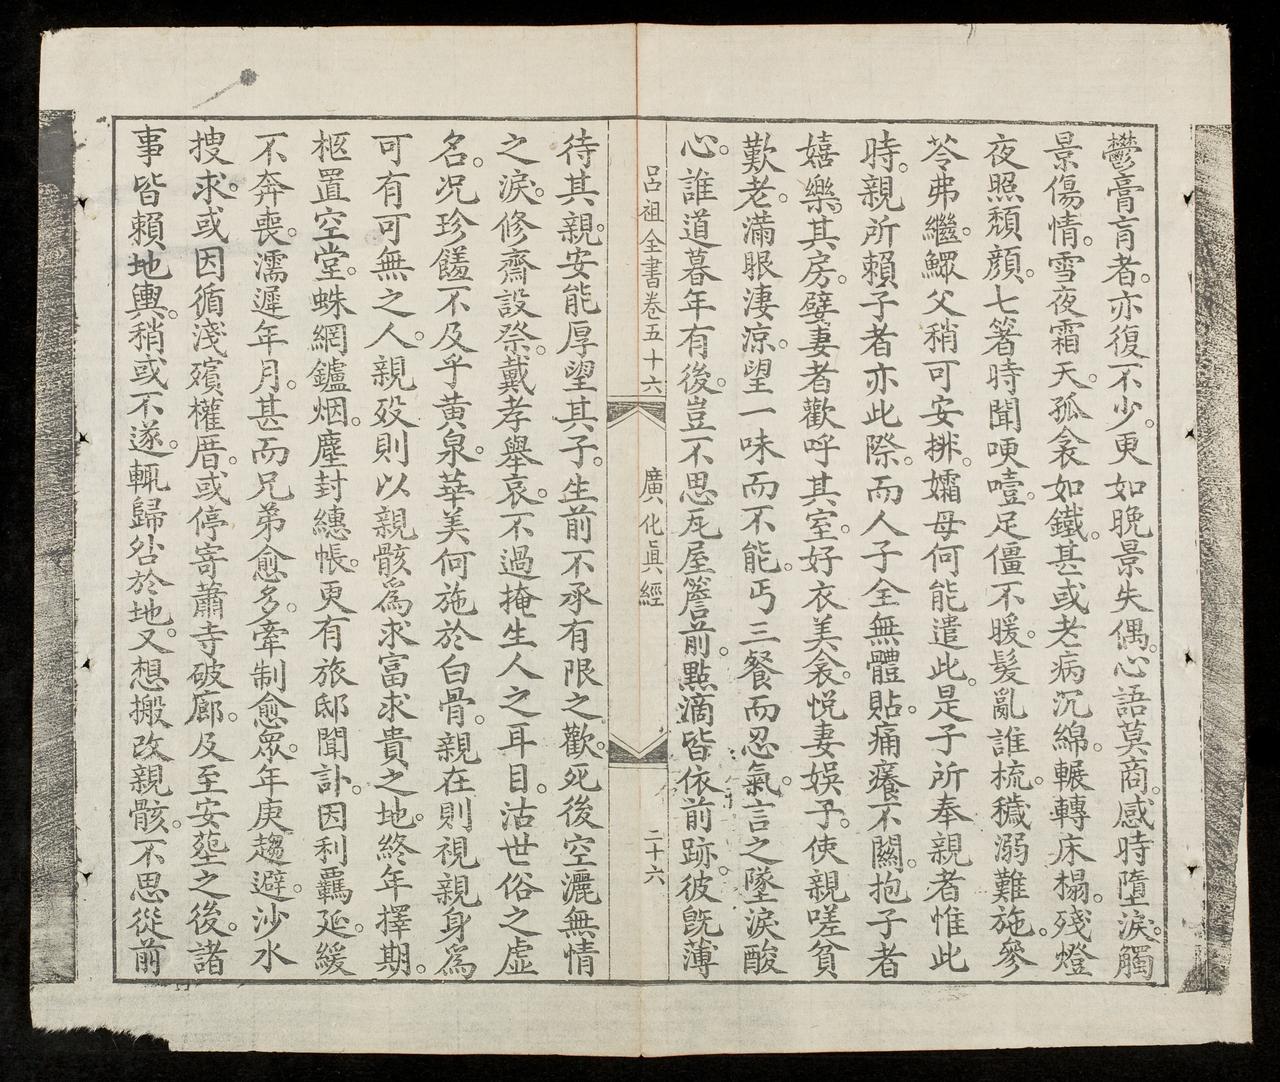 鬱膏肓者。亦復不少。更如晚景失偶。心語莫商。感時墮淚。觸
景傷情。雪夜霜天。孤衾如鐵。甚或老病沉綿。輾轉床榻。殘燈
夜照頹顏。七箸時聞哽噎。足僵不暖。髮亂誰梳。穢溺難施。參
苓弗繼。鰥父稍可安排。孀母何能遣此。是子所奉親者惟此
時。親所賴子者亦此際。而人子全無體貼。痛癢不關。抱子者
嬉樂其房。嬖妻者歡呼其室。好衣美衾。悅妻娛子。使親嗟貧
歎老。滿眼淒涼。望一味而不能。丐三餐而忍氣。言之墜淚酸
心。誰道暮年有後。豈不思瓦屋簷前。點滴皆依前跡。彼旣薄
呂祖全書卷五十六 廣化眞經 二十六
待其親。安能厚望其子。生前不承有限之歡。死後空灑無情
之淚。修齋設祭。戴孝舉哀。不過掩生人之耳目。沽世俗之虛
名。况珍饈不及乎黃泉。華美何施於白骨。親在則視親身爲
可有可無之人。親歿則以親骸爲求富求貴之地。終年擇期。
柩置空堂。蛛網鑪烟。塵封繐帳。更有旅邸聞訃。因利羈延。緩
不奔喪。濡遲年月。甚而兄弟愈多。牽制愈衆。年庚趨避。沙水
搜求。或因循淺殯權厝。或停寄蕭寺破廊。及至安塟之後。諸
事皆賴地輿。稍或不遂。輒歸咎於地。又想搬改親骸。不思從前